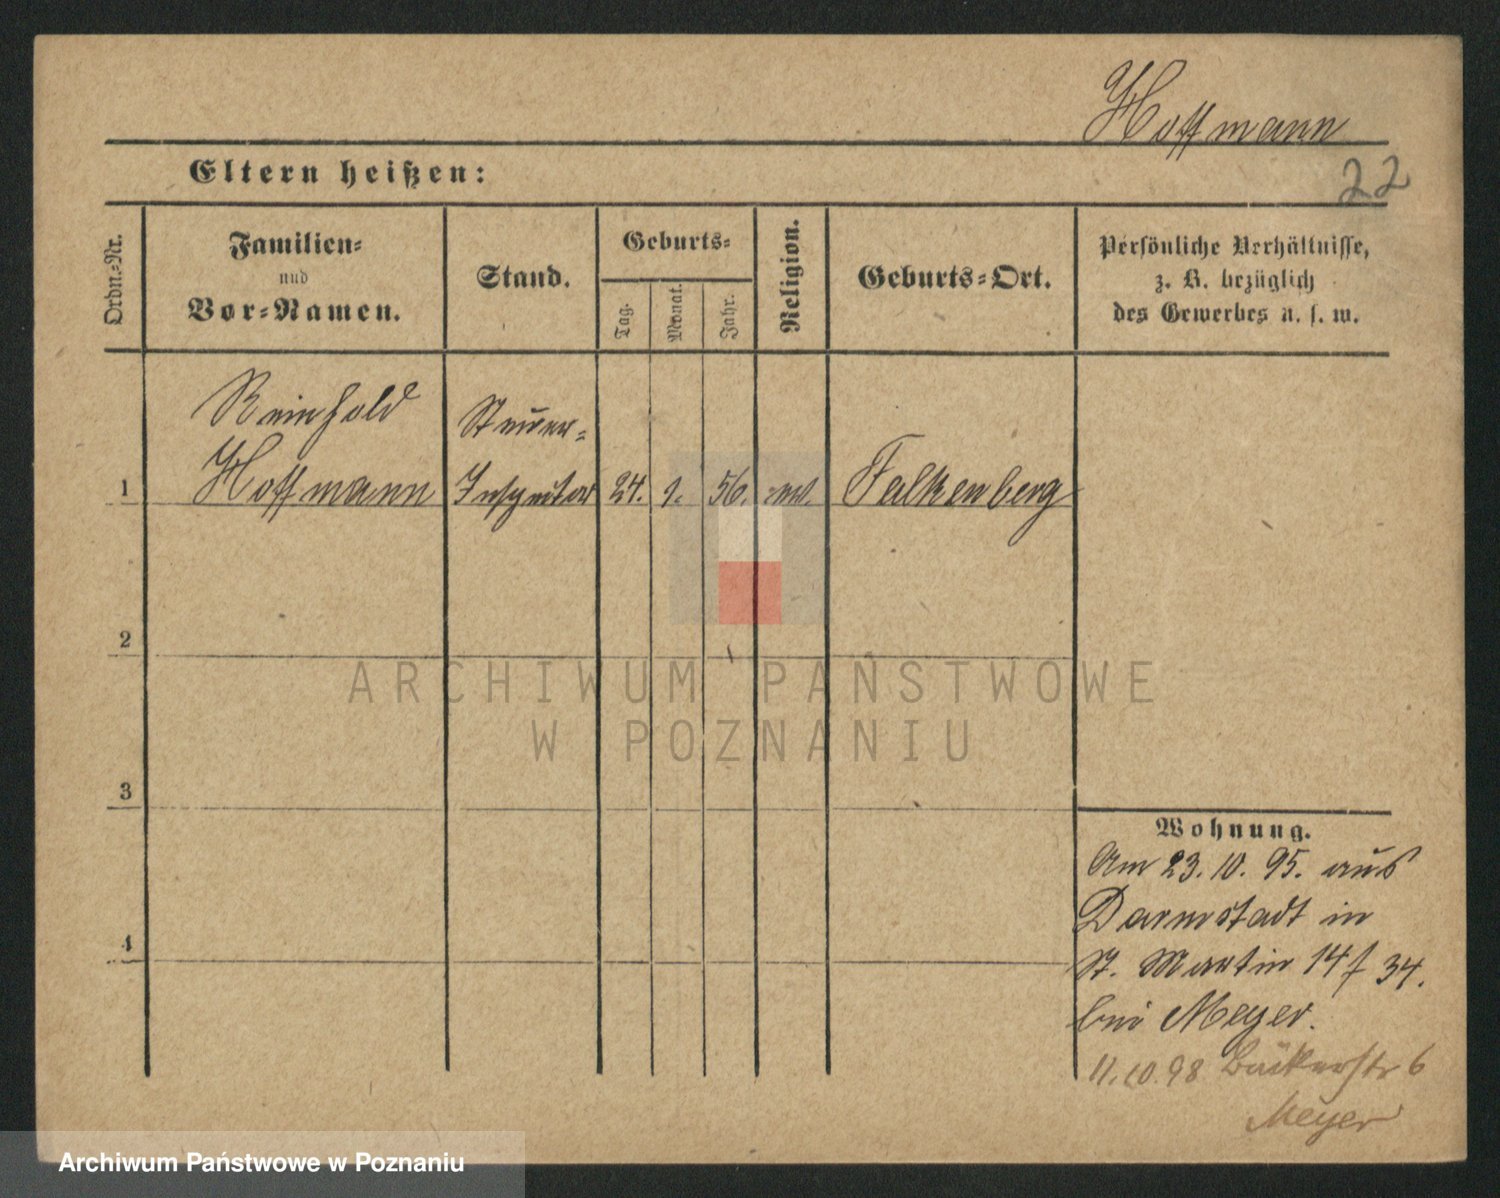 Hoffmann
Eltern heißen:
22
Ordn.-Nr.
Familien-
und
Vor-Namen.
Stand.
Geburts-
Tag.
Monat.
Jahr.
Religion.
Geburts-Ort.
Persönliche Verhältnisse,
z. B. bezüglich
des Gewerbes u. s. w.
Reinhold
Steuer-
1 Hoffmann Inspektor 24. 1. 56. ev. Falkenberg
2
3
4
Wohnung.
Am 23. 10. 95. aus
Darmstadt in
St. Martin 14 f 34.
bei Meyer.
11.10.98 Bäckerstr 6
Meyer
ARCHIWUM PAŃSTWOWE
W POZNANIU
Archiwum Państwowe w Poznaniu